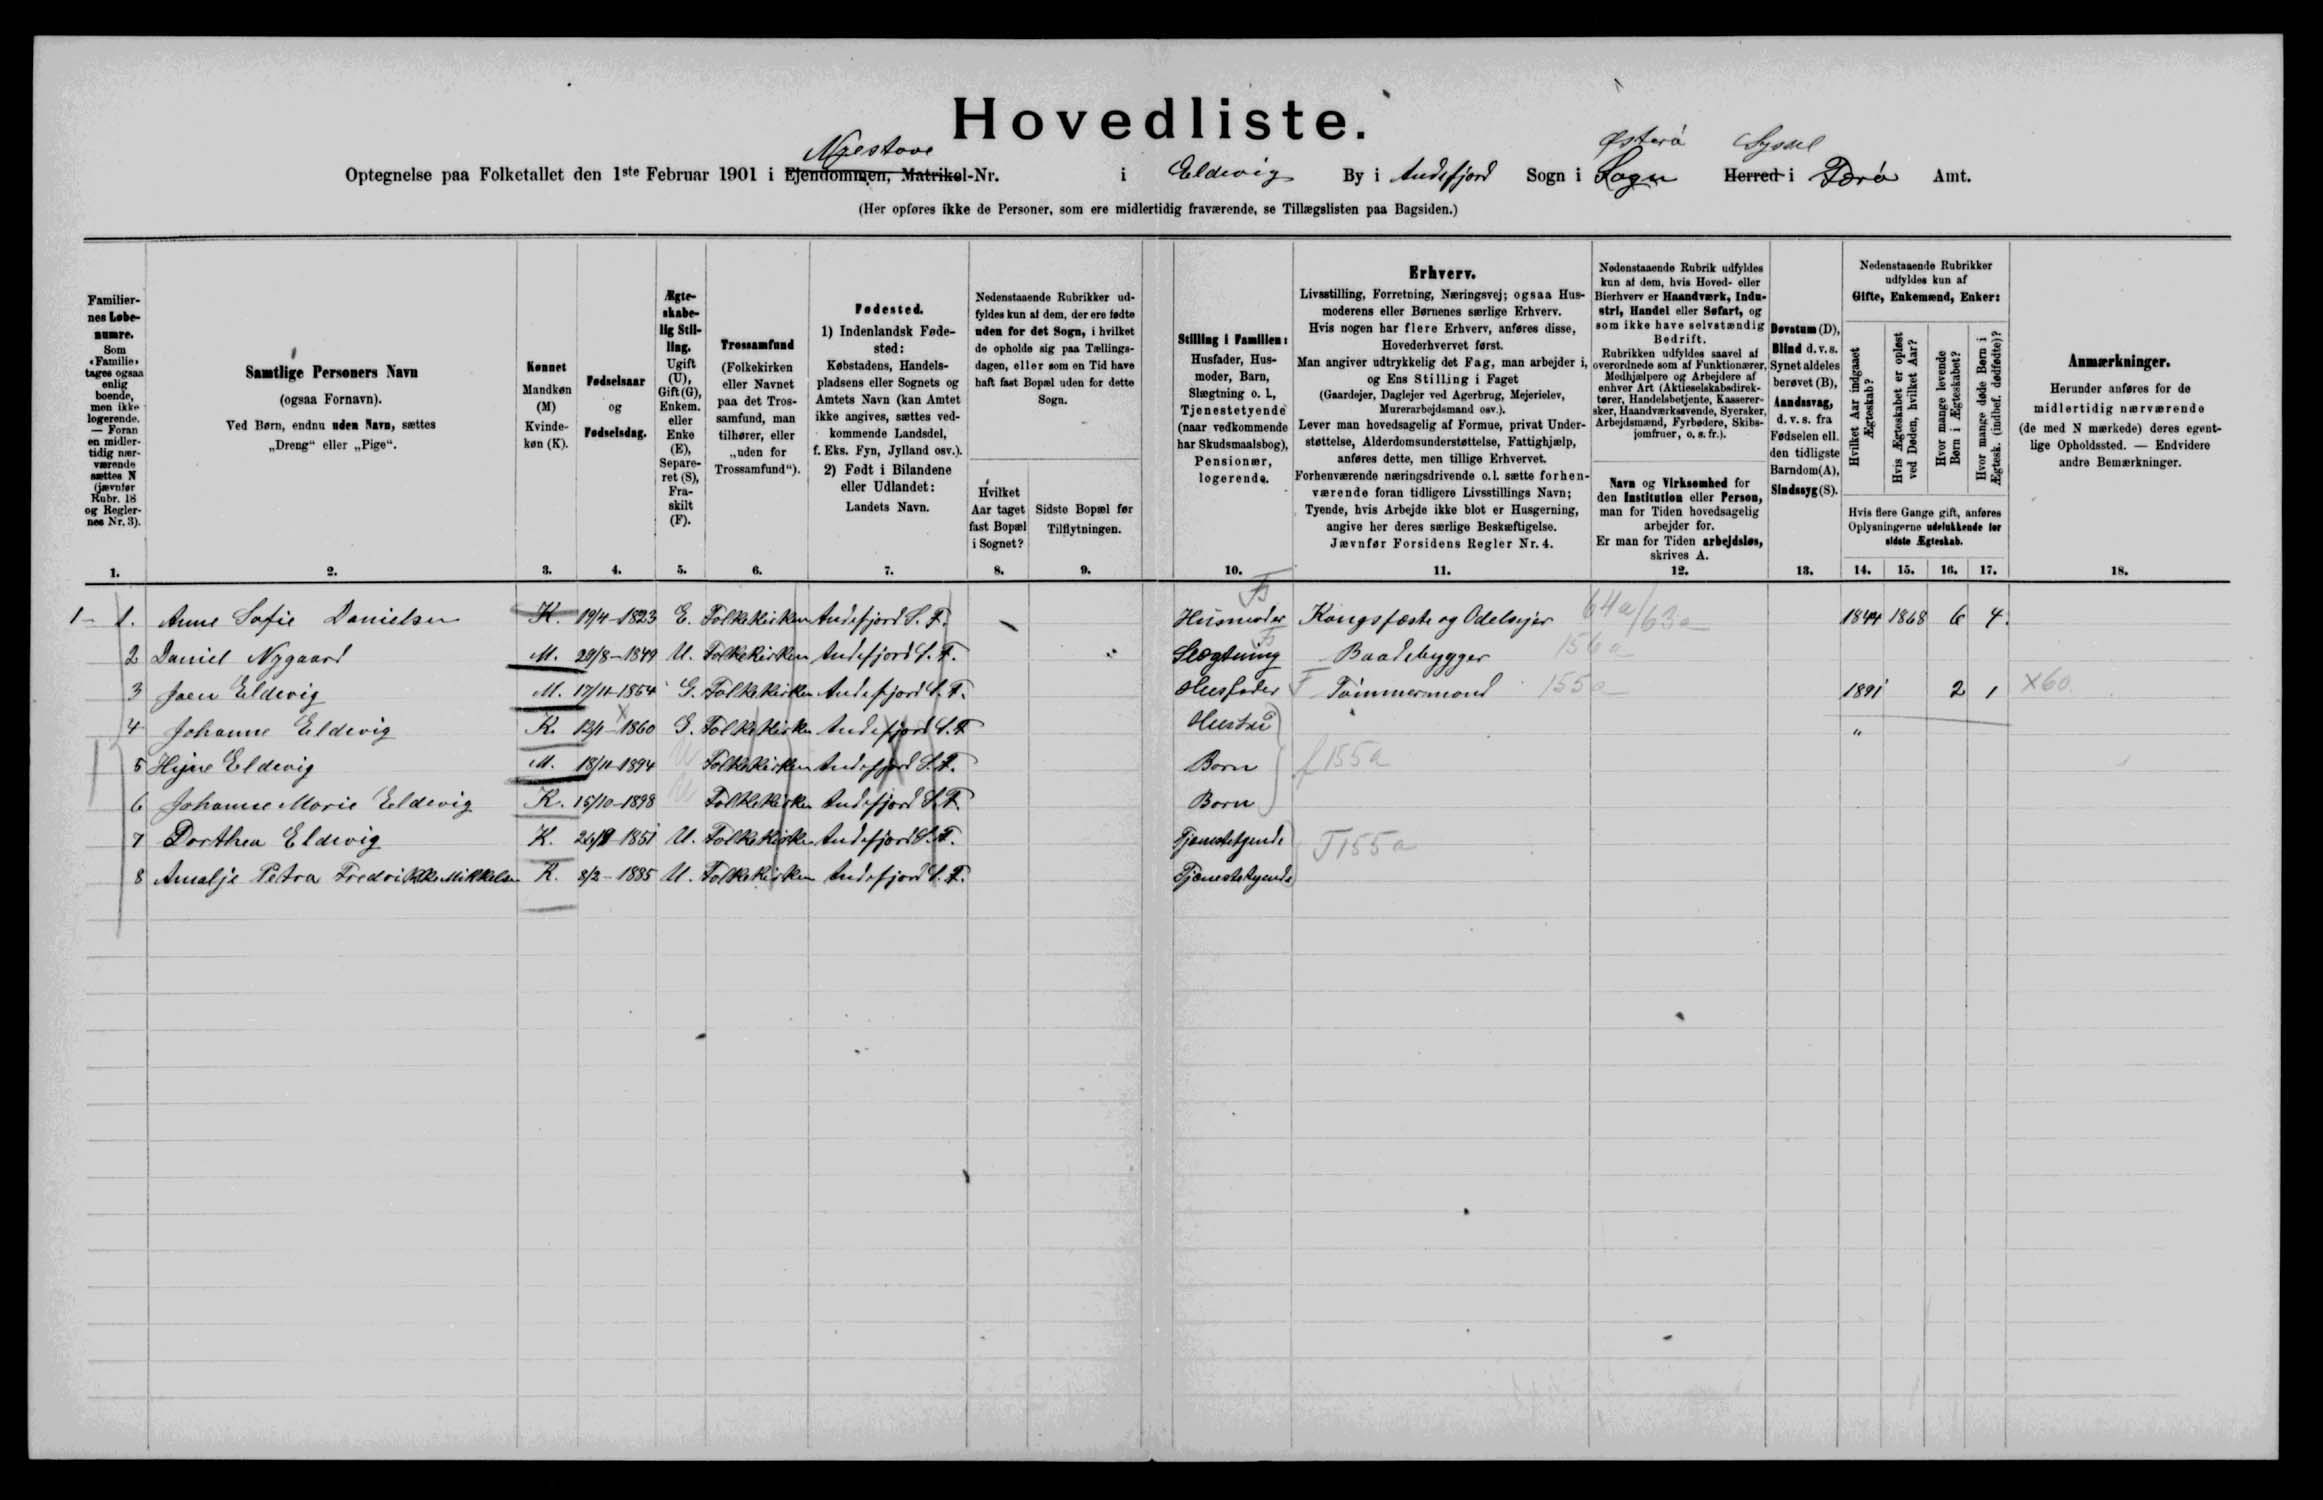 Hovedliste.
Østerö Sysdel
Optegnelse paa Folketallet den 1ste Februar 1901 i Ejendommen, Matrikel-Nr. i Eldevig By i Andefjord Sogn i Sogn Herred i Færö Amt.
(Her opføres ikke de Personer, som ere midlertidig fraværende, se Tillægslisten paa Bagsiden.)
Familier-
nes Løbe-
numre.
Som
«Familie»
tages ogsaa
enlig
boende,
men ikke
logerende.
— Foran
en midler-
tidig nær-
værende
sættes N
(jævnfør
Rubr. 18
og Regler-
nes Nr. 3).
Samtlige Personers Navn
(ogsaa Fornavn).
Ved Børn, endnu uden Navn, sættes
„Dreng“ eller „Pige“.
Kønnet
Mandkøn
(M)
Kvinde-
køn (K).
Fødselsaar
og
Fødselsdag.
Ægte-
skabe-
lig Stil-
ling.
Ugift
(U),
Gift (G),
Enkem.
eller
Enke
(E),
Separe-
ret (S),
Fra-
skilt
(F).
Trossamfund
(Folkekirken
eller Navnet
paa det Tros-
samfund, man
tilhører, eller
„uden for
Trossamfund“).
Fødested.
1) Indenlandsk Føde-
sted:
Købstadens, Handels-
pladsens eller Sognets og
Amtets Navn (kan Amtet
ikke angives, sættes ved-
kommende Landsdel,
f. Eks. Fyn, Jylland osv.).
2) Født i Bilandene
eller Udlandet:
Landets Navn.
Nedenstaaende Rubrikker ud-
fyldes kun af dem, der ere fødte
uden for det Sogn, i hvilket
de opholde sig paa Tællings-
dagen, eller som en Tid have
haft fast Bopæl uden for dette
Sogn.
Hvilket
Aar taget
fast Bopæl
i Sognet?
Sidste Bopæl før
Tilflytningen.
Stilling i Familien:
Husfader, Hus-
moder, Barn,
Slægtning o. l.,
Tjenestetyende
(naar vedkommende
har Skudsmaalsbog),
Pensionær,
logerende.
Erhverv.
Livsstilling, Forretning, Næringsvej; ogsaa Hus-
moderens eller Børnenes særlige Erhverv.
Hvis nogen har flere Erhverv, anføres disse,
Hovederhvervet først.
Man angiver udtrykkelig det Fag, man arbejder i,
og Ens Stilling i Faget
(Gaardejer, Daglejer ved Agerbrug, Mejerielev,
Murerarbejdsmand osv.).
Lever man hovedsagelig af Formue, privat Under-
støttelse, Alderdomsunderstøttelse, Fattighjælp,
anføres dette, men tillige Erhvervet.
Forhenværende næringsdrivende o. l. sætte forhen-
værende foran tidligere Livsstillings Navn;
Tyende, hvis Arbejde ikke blot er Husgerning,
angive her deres særlige Beskæftigelse.
Jævnfør Forsidens Regler Nr. 4.
Nedenstaaende Rubrik udfyldes
kun af dem, hvis Hoved- eller
Bierhverv er Haandværk, Indu-
stri, Handel eller Søfart, og
som ikke have selvstændig
Bedrift.
Rubrikken udfyldes saavel af
overordnede som af Funktionærer,
Medhjælpere og Arbejdere af
enhver Art (Aktieselskabsdirek-
tører, Handelsbetjente, Kasserer-
sker, Haandværkssvende, Syersker,
Arbejdsmænd, Fyrbødere, Skibs-
jomfruer, o. s. fr.).
Navn og Virksomhed for
den Institution eller Person,
man for Tiden hovedsagelig
arbejder for.
Er man for Tiden arbejdsløs,
skrives A.
Døvstum (D),
Blind d. v. s.
Synet aldeles
berøvet (B),
Aandssvag,
d. v. s. fra
Fødselen ell.
den tidligste
Barndom (A),
Sindssyg (S).
Nedenstaaende Rubrikker
udfyldes kun af
Gifte, Enkemænd, Enker:
Hvilket Aar indgaaet
Ægteskab?
Hvis Ægteskabet er opløst
ved Døden, hvilket Aar?
Hvor mange levende
Børn i Ægteskabet?
Hvor mange døde Børn i
Ægtesk. (indbef. dødfødte)?
Hvis flere Gange gift, anføres
Oplysningerne udelukkende for
sidste Ægteskab.
Anmærkninger.
Herunder anføres for de
midlertidig nærværende
(de med N mærkede) deres egent-
lige Opholdssted. — Endvidere
andre Bemærkninger.
1. 2. 3. 4. 5. 6. 7. 8. 9. 10. 11. 12. 13. 14. 15. 16. 17. 18.
1- 1. Anne Sofie Danielsen K. 19/4-1823 E. Folkekirken Andefjord S. F. Husmoder Kongsfæste og Odelsejer 64a/63a 1844 1868 6 4.
2 Daniel Nygaard M. 29/8-1849 U. Folkekirken Andefjord S. F. Slægtning Baadebygger 156a
3 Joen Eldevig M. 17/11-1854 G. Folkekirken Andefjord S. F. Husfader F Tömmermand 155a 1891 2 1 X60
4 Johanne Eldevig K. 12/1-1860 G. Folkekirken Andefjord S. F. Hustru "
5 Eldevig M. 18/11-1894 U Folkekirken Andefjord S. F. Barn f 155a
6 Johanne Marie Eldevig K. 15/10-1898 U Folkekirken Andefjord S. F. Barn
7 Dorthea Eldevig K. 1851 U. Folkekirken Andefjord S. F. Tjenestetyende T155a
8 Amalje Petra Fredrikke Mikkelsen K. 8/2-1885 U. Folkekirken Andefjord S. F. Tjenestetyende